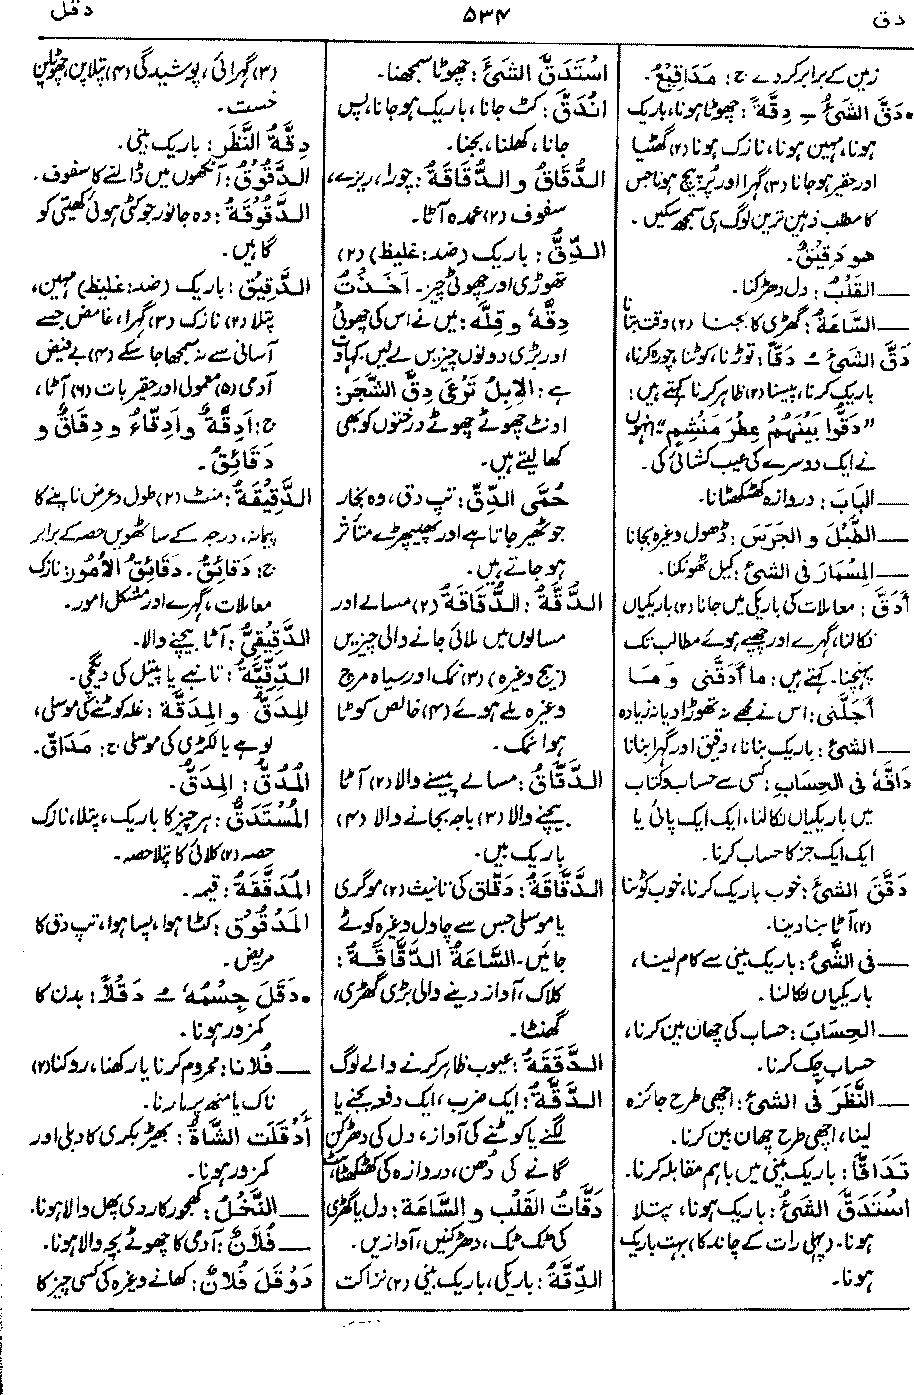 دق
۵۳۴
دقل
زمین کے برابر کردے ج: مَدَاقِیعُ.
• دَقَّ الشَّیْءُ ــِ دِقَّةً: چھوٹا ہونا، باریک
ہونا، مہین ہونا، نازک ہونا (۲) گھٹیا
اور حقیر ہو جانا (۳) گہرا اور پُر پیچ ہونا جس
کا مطلب ذہین ترین لوگ ہی سمجھ سکیں.
هو دَقِیْقٌ.
ــ القَلْبُ: دل دھڑکنا.
ــ السَّاعَةُ: گھڑی کا بجنا (۲) وقت بتانا
دَقَّ الشَّیْءَ ــُ دَقًّا: توڑنا، کوٹنا، چورہ کرنا،
باریک کرنا، پیسنا (۲) ظاہر کرنا کہتے ہیں:
”دَقُّوا بَیْنَهُمْ عِطْرَ مَنْشِمٍ“ انہوں
نے ایک دوسرے کی عیب کشائی کی.
ــ البَابَ: دروازہ کھٹکھٹانا.
ــ الطَّبْلَ و الجَرَسَ: ڈھول وغیرہ بجانا
ــ المِسْمَارَ فی الشَّیْءِ: کیل ٹھونکنا.
أَدَقَّ: معاملات کی باریکی میں جانا (۲) باریکیاں
نکالنا، گہرے اور چھپے ہوئے مطالب تک
پہنچنا. کہتے ہیں: ما أَدَقَّنِی وَمَا
أَجَلَّنِی: اس نے مجھے نہ تھوڑا دیا نہ زیادہ
ــ الشَّیْءَ: باریک بنانا، دقیق اور گہرا بنانا
دَاقَّهُ فی الحِسَابِ: کسی سے حساب و کتاب
میں باریکیاں نکالنا، ایک ایک پائی یا
ایک ایک جز کا حساب کرنا.
دَقَّقَ الشَّیْءَ: خوب باریک کرنا، خوب کوٹنا
(۲) آٹا بنا دینا.
ــ فی الشَّیْءِ: باریک بینی سے کام لینا،
باریکیاں نکالنا.
ــ الحِسَابَ: حساب کی چھان بین کرنا،
حساب چیک کرنا.
ــ النَّظَرَ فی الشَّیْءِ: اچھی طرح جائزہ
لینا، اچھی طرح چھان بین کرنا.
تَدَاقَّا: باریک بینی میں باہم مقابلہ کرنا.
اسْتَدَقَّ الشَّیْءُ: باریک ہونا، پتلا
ہونا. (پہلی رات کے چاند کا) بہت باریک
ہونا.
اسْتَدَقَّ الشَّیْءَ: چھوٹا سمجھنا.
انْدَقَّ: کٹ جانا، باریک ہو جانا، پس
جانا، کھلنا، بجنا.
الدُّقَاقُ و الدُّقَاقَةُ: چورا، ریزے،
سفوف (۲) عمدہ آٹا.
الدِّقُّ: باریک (ضد: غلیظ) (۲)
تھوڑی اور چھوٹی چیز. أَخَذْتُ
دِقَّهُ وَ قِلَّهُ: میں نے اس کی چھوٹی
اور بڑی دونوں چیزیں لے لیں. کہاوت
ہے: الإِبِلُ تَرْعَى دِقَّ الشَّجَرِ:
اونٹ چھوٹے چھوٹے درختوں کو بھی
کھا لیتے ہیں.
حُمَّى الدِّقِّ: تپ دق، وہ بخار
جو ٹھیر جاتا ہے اور پھیپھڑے متأثر
ہو جاتے ہیں.
الدُّقَّةُ: الدُّقَاقَةُ (۲) مسالے اور
مسالوں میں ملائی جانے والی چیزیں
(بیج وغیرہ) (۳) نمک اور سیاہ مرچ
وغیرہ ملے ہوئے (۴) خالص کوٹا
ہوا نمک.
الدَّقَّاقُ: مسالے پیسنے والا (۲) آٹا
بیچنے والا (۳) باجہ بجانے والا (۴)
باریک بیں.
الدَّقَّاقَةُ: دَقَّاق کی تانیث (۲) موگری
یا موسلی جس سے چاول وغیرہ کوٹے
جائیں. السَّاعَةُ الدَّقَّاقَةُ:
کلاک، آواز دینے والی بڑی گھڑی،
گھنٹا.
الدَّقَقَةُ: عیوب ظاہر کرنے والے لوگ
الدَّقَّةُ: ایک ضرب، ایک دفعہ بجنے یا
لگنے یا کوٹنے کی آواز، دل کی دھڑکن
گانے کی دُھن، دروازہ کی کھٹکھٹاہٹ
دَقَّاتُ القَلْبِ و السَّاعَةِ: دل یا گھڑی
کی ٹک ٹک، دھڑکنیں، آوازیں.
الدِّقَّةُ: باریکی، باریک بینی (۲) نزاکت
(۳) گہرائی، پوشیدگی (۴) پتلاپن، چھوٹاپن
خست.
دِقَّةُ النَّظَرِ: باریک بینی.
الدَّقُوْقُ: آنکھوں میں ڈالنے کا سفوف.
الدَّقُوْقَةُ: وہ جانور جو کٹی ہوئی کھیتی کو
گاہیں.
الدَّقِیْقُ: باریک (ضد: غلیظ) مہین،
پتلا (۲) نازک (۳) گہرا، غامض جسے
آسانی سے نہ سمجھا جا سکے (۴) بے فیض
آدمی (۵) معمولی اور حقیر بات (۶) آٹا،
ج: أَدِقَّةٌ وأَدِقَّاءُ و دِقَاقٌ و
دَقَائِقُ.
الدَّقِیْقَةُ: منٹ (۲) طول و عرض ناپنے کا
پیمانہ، درجہ کے ساٹھویں حصہ کے برابر
ج: دَقَائِقُ. دَقَائِقُ الأُمُوْرِ: نازک
معاملات، گہرے اور مشکل امور.
الدَّقِیْقِیُّ: آٹا بیچنے والا.
الدِّقِّیَّةُ: تانبے یا پیتل کی دیگچی.
المِدَقُّ والمِدَقَّةُ: غلہ کوٹنے کی موسلی،
لوہے یا لکڑی کی موسلی ج: مَدَاقُّ.
المُدُقُّ: المِدَقُّ.
المُسْتَدَقُّ: ہر چیز کا باریک، پتلا، نازک
حصہ (۲) کلائی کا پتلا حصہ.
المُدَقَّقَةُ: قیمہ.
المَدْقُوْقُ: کٹا ہوا، پسا ہوا، تپ دق کا
مریض.
• دَقَلَ جِسْمُهُ ــُ دَقْلًا: بدن کا
کمزور ہونا.
ــ فُلَانًا: محروم کرنا یا رکھنا، روکنا (۲)
ناک یا منھ پر مارنا.
أَدْقَلَتِ الشَّاةُ: بھیڑ بکری کا دبلی اور
کمزور ہونا.
ــ النَّخْلُ: کھجور کا ردی پھل والا ہونا.
ــ فُلَانٌ: آدمی کا چھوٹے بچہ والا ہونا.
دَوْقَلَ فُلَانٌ: کھانے وغیرہ کی کسی چیز کا